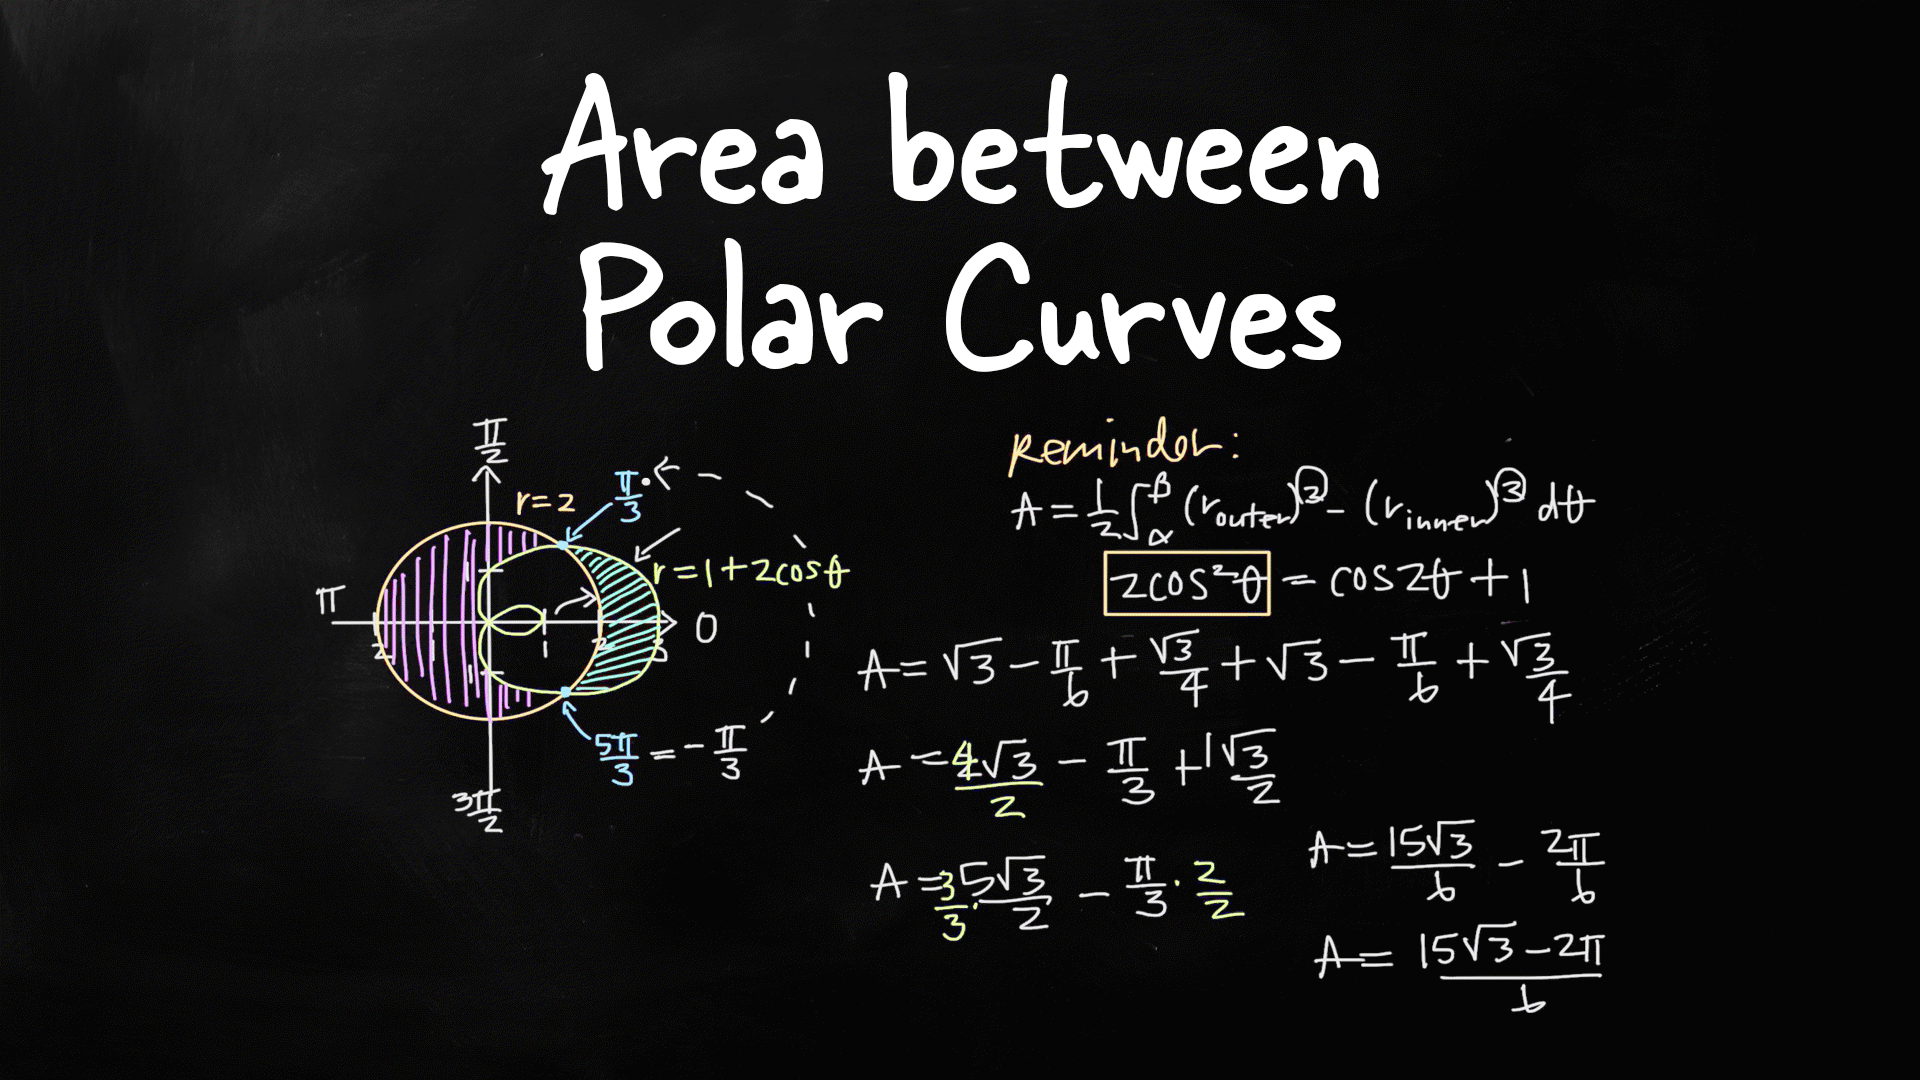 Area between
Polar Curves
π/2
r=2
π/3
r=1+2cosθ
π
0
2
1
2
3
1
1
5π/3 = -π/3
3π/2
Reminder:
A = 1/2 ∫_α^β (r_outer)^2 - (r_inner)^2 dθ
2cos²θ = cos2θ + 1
A = √3 - π/6 + √3/4 + √3 - π/6 + √3/4
A = 4√3/2 - π/3 + 1√3/2
A = 3/3 · 5√3/2 - π/3 · 2/2
A = 15√3/6 - 2π/6
A = 15√3-2π/6